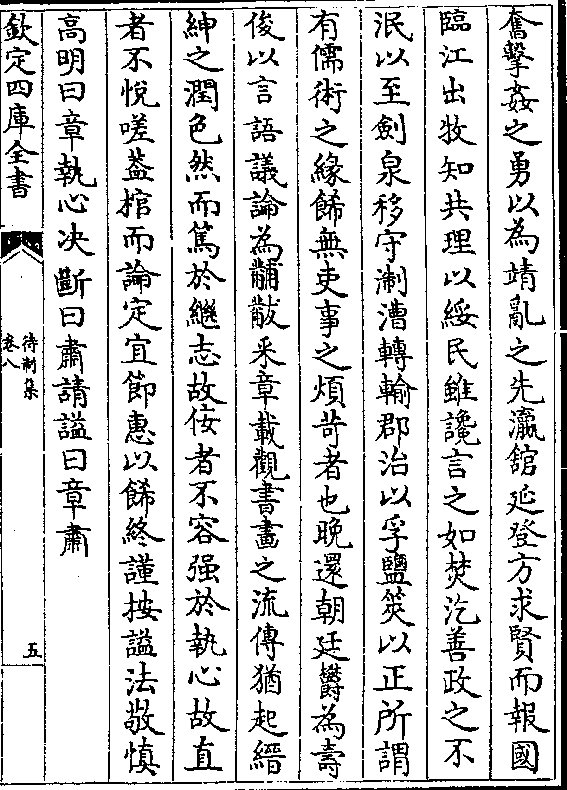 奮擊姦之勇以為靖亂之先瀛舘延登方求賢而報國
臨江出牧知共理以綏民雖讒言之如焚汔善政之不
泯以至劍泉移守淛漕轉輸郡治以孚鹽筴以正所謂
有儒術之緣飾無吏事之煩苛者也晚還朝廷欎為壽
俊以言語議論為黼黻采章載觀書畫之流傳猶起縉
紳之潤色然而篤於繼志故佞者不容强於執心故直
者不悅嗟葢棺而論定宜節惠以餙終謹按諡法敬慎
高明曰章執心决斷曰肅請諡曰章肅
欽定四庫全書
待制集
卷八
五